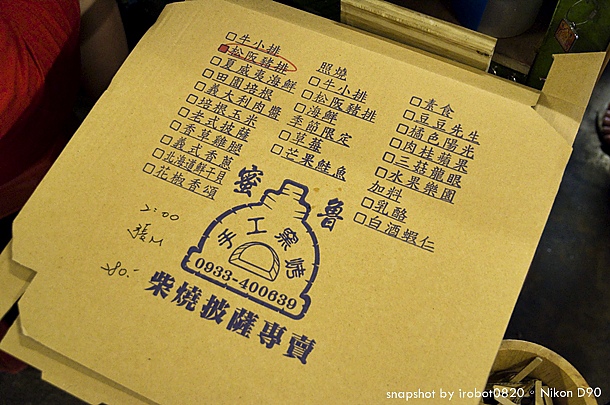 □牛小排
□松阪豬排
□夏威夷海鮮
□田園培根
□義大利肉醬
□培根玉米
□老式披薩
□香草雞腿
□義式香蔥
□北海道鮮干貝
□花椒香頌
照燒
□牛小排
□松阪豬排
□海鮮
季節限定
□草莓
□芒果鮭魚
□素食
□豆豆先生
□橘色陽光
□肉桂蘋果
□三菇龍眼
□水果樂園
加料
□乳酪
□白酒蝦仁
蜜魯
手工窯燒
0933-400639
柴燒披薩專賣
snapshot by irobot0820。Nikon D90